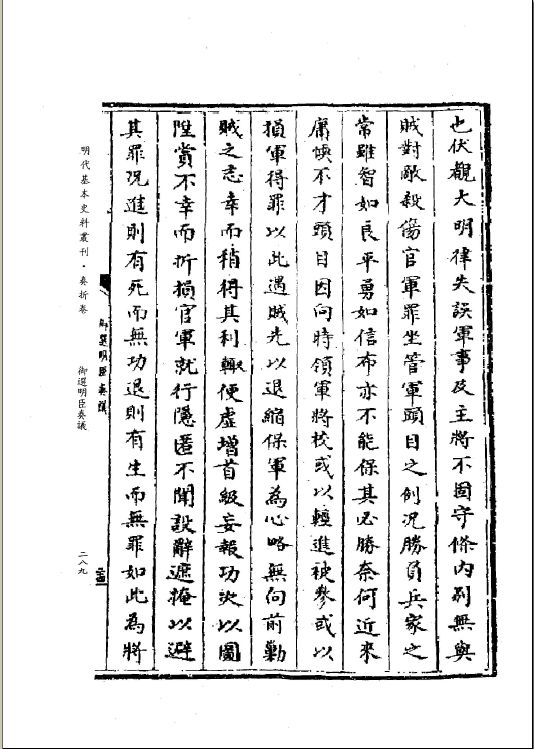 也伏觀大明律失誤軍事及主將不固守條內别無與
賊對敵殺傷官軍罪坐管軍頭目之例况勝負兵家之
常雖智如良平勇如信布亦不能保其必勝奈何近來
庸懊不才頭目因向時領軍將校或以輕進被參或以
損軍得罪以此遇賊先以退縮保軍為心略無向前勦
賊之志幸而稍得其利輙便虛增首級妄報功次以圖
陞賞不幸而折損官軍就行隱匿不聞設辭遮掩以避
其罪况進則有死而無功退則有生而無罪如此為將
御選明臣奏議
明代基本史料叢刊·奏折卷
御選明臣奏議
二八九